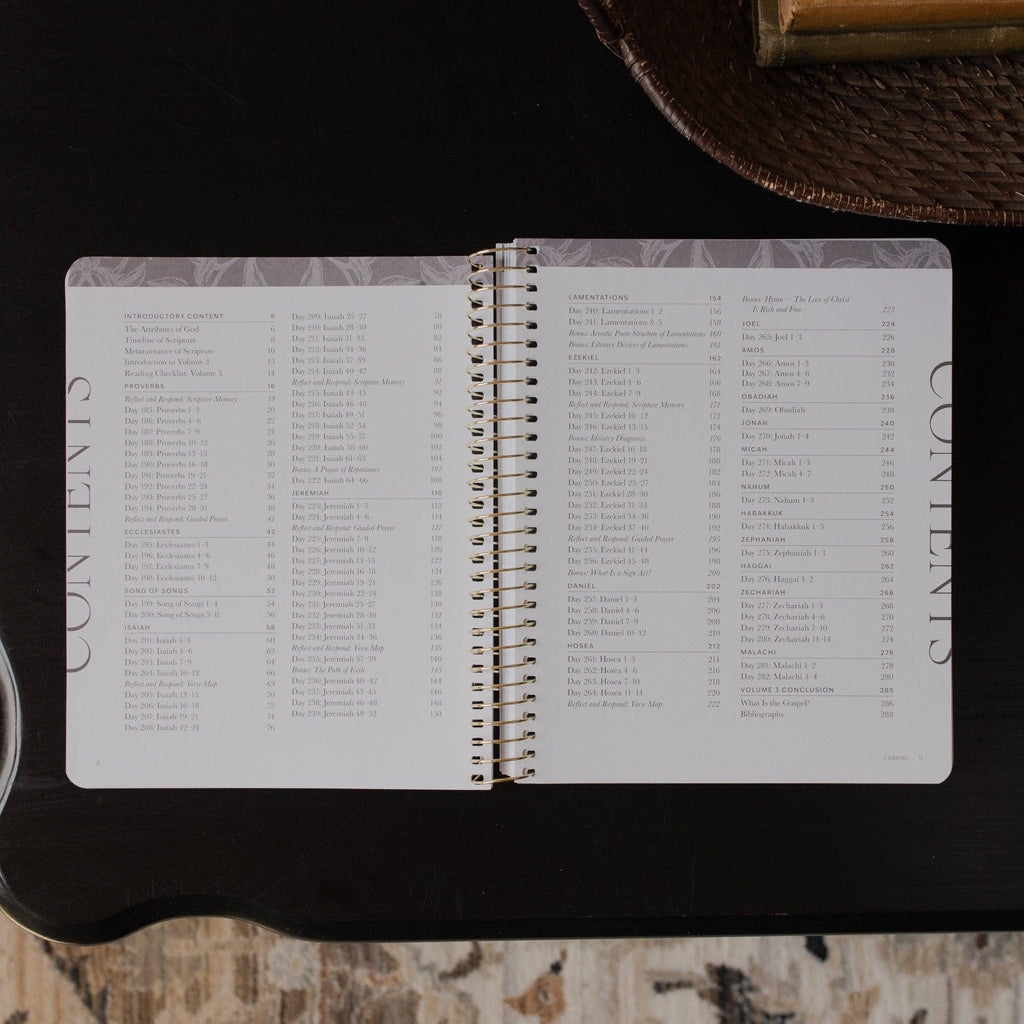 CONTENTS
INTRODUCTORY CONTENT 6
The Attributes of God 6
Timeline of Scripture 8
Metanarrative of Scripture 10
Introduction to Volume 3 13
Reading Checklist: Volume 3 14
PROVERBS 16
Reflect and Respond: Scripture Memory 19
Day 185: Proverbs 1–3 20
Day 186: Proverbs 4–6 22
Day 187: Proverbs 7–9 24
Day 188: Proverbs 10–12 26
Day 189: Proverbs 13–15 28
Day 190: Proverbs 16–18 30
Day 191: Proverbs 19–21 32
Day 192: Proverbs 22–24 34
Day 193: Proverbs 25–27 36
Day 194: Proverbs 28–31 38
Reflect and Respond: Guided Prayer 41
ECCLESIASTES 42
Day 195: Ecclesiastes 1–3 44
Day 196: Ecclesiastes 4–6 46
Day 197: Ecclesiastes 7–9 48
Day 198: Ecclesiastes 10–12 50
SONG OF SONGS 52
Day 199: Song of Songs 1–4 54
Day 200: Song of Songs 5–8 56
ISAIAH 58
Day 201: Isaiah 1–3 60
Day 202: Isaiah 4–6 62
Day 203: Isaiah 7–9 64
Day 204: Isaiah 10–12 66
Reflect and Respond: Verse Map 69
Day 205: Isaiah 13–15 70
Day 206: Isaiah 16–18 72
Day 207: Isaiah 19–21 74
Day 208: Isaiah 22–24 76
Day 209: Isaiah 25–27 78
Day 210: Isaiah 28–30 80
Day 211: Isaiah 31–33 82
Day 212: Isaiah 34–36 84
Day 213: Isaiah 37–39 86
Day 214: Isaiah 40–42 88
Reflect and Respond: Scripture Memory 91
Day 215: Isaiah 43–45 92
Day 216: Isaiah 46–48 94
Day 217: Isaiah 49–51 96
Day 218: Isaiah 52–54 98
Day 219: Isaiah 55–57 100
Day 220: Isaiah 58–60 102
Day 221: Isaiah 61–63 104
Bonus: A Prayer of Repentance 107
Day 222: Isaiah 64–66 108
JEREMIAH 110
Day 223: Jeremiah 1–3 112
Day 224: Jeremiah 4–6 114
Reflect and Respond: Guided Prayer 117
Day 225: Jeremiah 7–9 118
Day 226: Jeremiah 10–12 120
Day 227: Jeremiah 13–15 122
Day 228: Jeremiah 16–18 124
Day 229: Jeremiah 19–21 126
Day 230: Jeremiah 22–24 128
Day 231: Jeremiah 25–27 130
Day 232: Jeremiah 28–30 132
Day 233: Jeremiah 31–33 134
Day 234: Jeremiah 34–36 136
Reflect and Respond: Verse Map 139
Day 235: Jeremiah 37–39 140
Bonus: The Path of Exile 143
Day 236: Jeremiah 40–42 144
Day 237: Jeremiah 43–45 146
Day 238: Jeremiah 46–48 148
Day 239: Jeremiah 49–52 150
4
LAMENTATIONS 154
Day 240: Lamentations 1–2 156
Day 241: Lamentations 3–5 158
Bonus: Acrostic Poem Structure of Lamentations 160
Bonus: Literary Devices of Lamentations 161
EZEKIEL 162
Day 242: Ezekiel 1–3 164
Day 243: Ezekiel 4–6 166
Day 244: Ezekiel 7–9 168
Reflect and Respond: Scripture Memory 171
Day 245: Ezekiel 10–12 172
Day 246: Ezekiel 13–15 174
Bonus: Idolatry Diagnosis 176
Day 247: Ezekiel 16–18 178
Day 248: Ezekiel 19–21 180
Day 249: Ezekiel 22–24 182
Day 250: Ezekiel 25–27 184
Day 251: Ezekiel 28–30 186
Day 252: Ezekiel 31–33 188
Day 253: Ezekiel 34–36 190
Day 254: Ezekiel 37–40 192
Reflect and Respond: Guided Prayer 195
Day 255: Ezekiel 41–44 196
Day 256: Ezekiel 45–48 198
Bonus: What Is a Sign Act? 200
DANIEL 202
Day 257: Daniel 1–3 204
Day 258: Daniel 4–6 206
Day 259: Daniel 7–9 208
Day 260: Daniel 10–12 210
HOSEA 212
Day 261: Hosea 1–3 214
Day 262: Hosea 4–6 216
Day 263: Hosea 7–10 218
Day 264: Hosea 11–14 220
Reflect and Respond: Verse Map 222
Bonus: Hymn — The Love of Christ
Is Rich and Free 223
JOEL 224
Day 265: Joel 1–3 226
AMOS 228
Day 266: Amos 1–3 230
Day 267: Amos 4–6 232
Day 268: Amos 7–9 234
OBADIAH 236
Day 269: Obadiah 238
JONAH 240
Day 270: Jonah 1–4 242
MICAH 244
Day 271: Micah 1–3 246
Day 272: Micah 4–7 248
NAHUM 250
Day 273: Nahum 1–3 252
HABAKKUK 254
Day 274: Habakkuk 1–3 256
ZEPHANIAH 258
Day 275: Zephaniah 1–3 260
HAGGAI 262
Day 276: Haggai 1–2 264
ZECHARIAH 266
Day 277: Zechariah 1–3 268
Day 278: Zechariah 4–6 270
Day 279: Zechariah 7–10 272
Day 280: Zechariah 11–14 274
MALACHI 276
Day 281: Malachi 1–2 278
Day 282: Malachi 3–4 280
VOLUME 3 CONCLUSION 285
What Is the Gospel? 286
Bibliography 288
CONTENTS
Contents 5